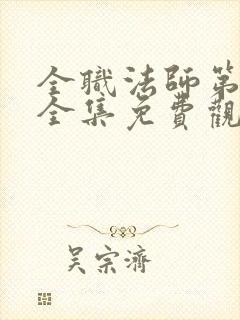 全職法師第
全集免費觀
吳宗濟